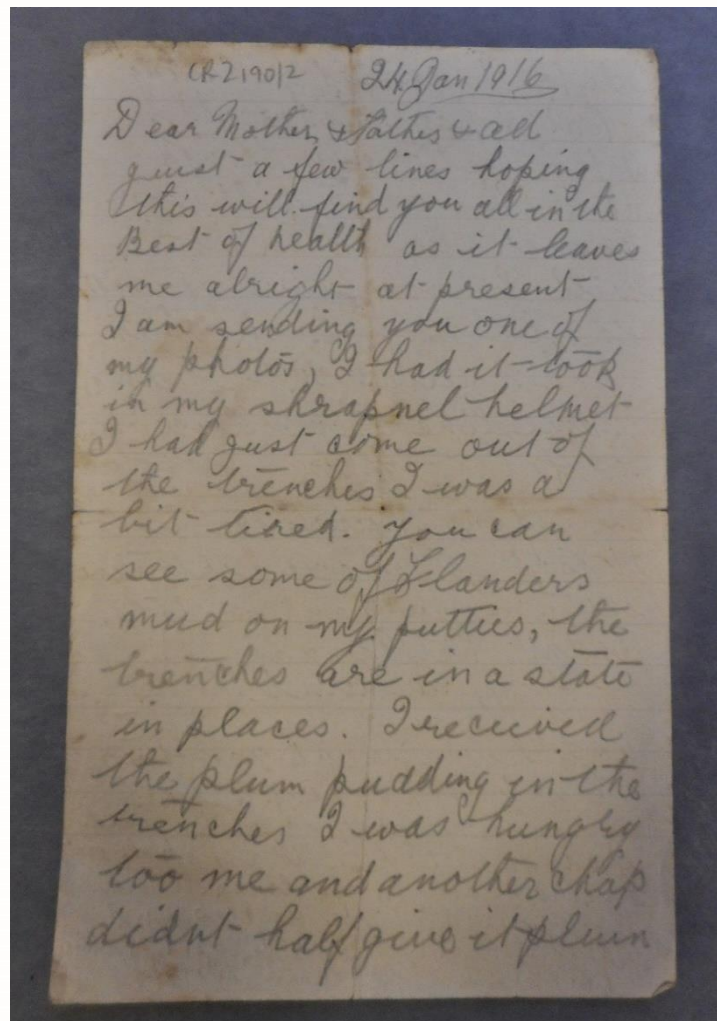 CR2190/2 24 Jan 1916
Dear Mother & Father & all
just a few lines hoping
this will find you all in the
Best of health as it leaves
me alright at present
I am sending you one of
my photos, I had it took
in my shrapnel helmet
I had just come out of
the trenches I was a
bit tired. you can
see some of Flanders
mud on my putties, the
trenches are in a state
in places. I received
the plum pudding in the
trenches I was hungry
too me and another chap
didnt half give it plum